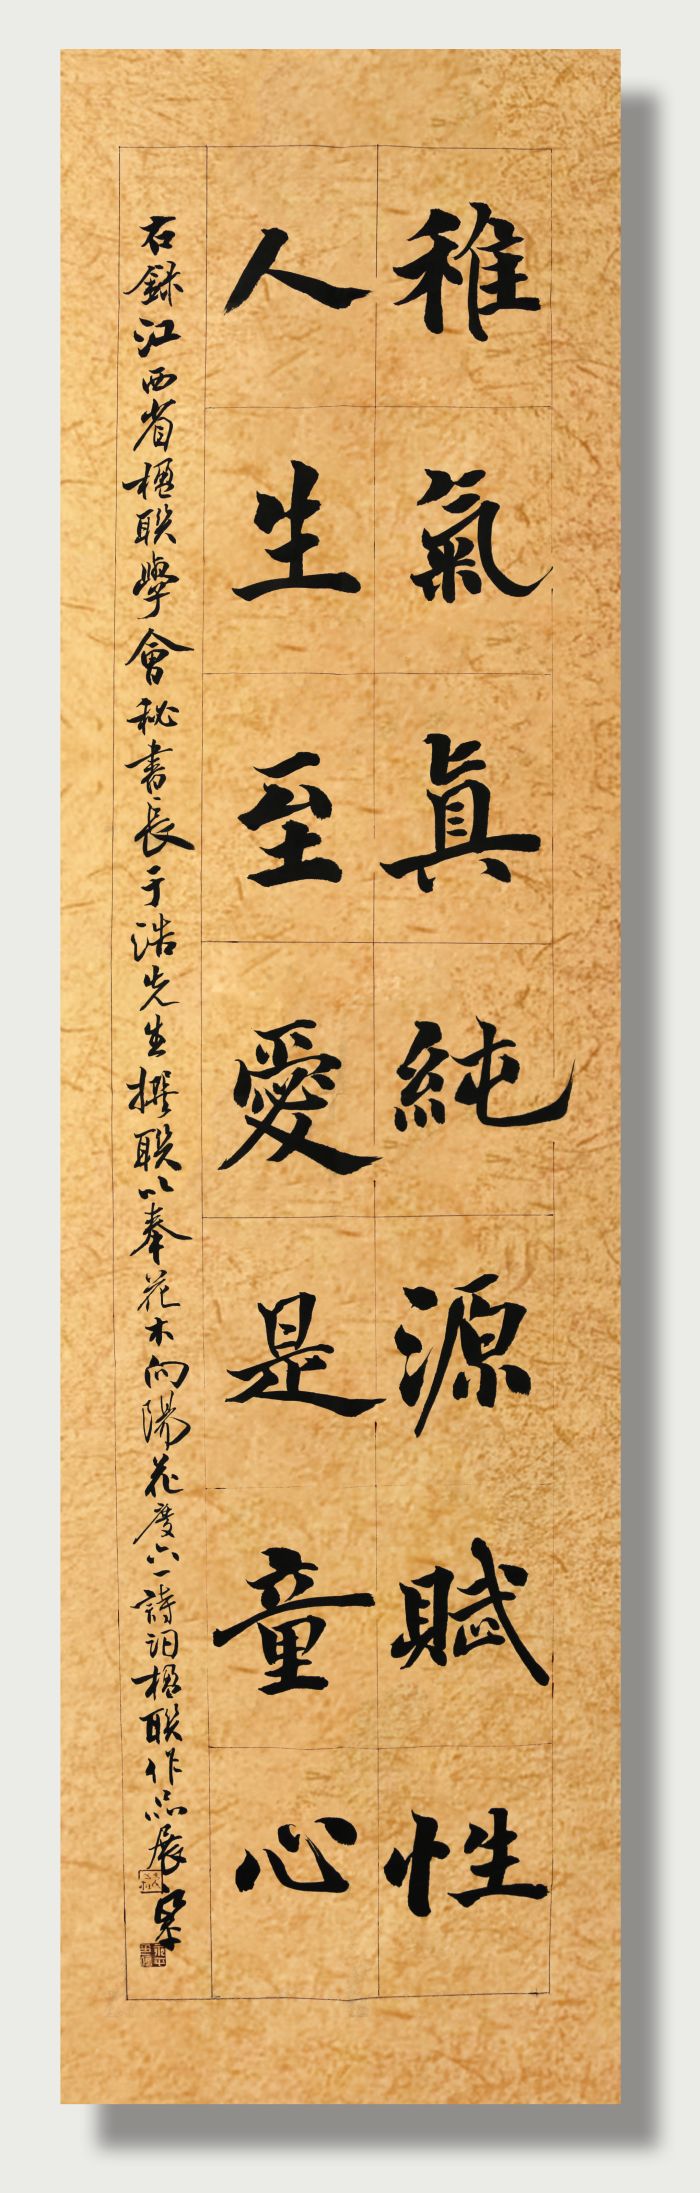 稚氣真純源賦性
人生至愛是童心
右録江西省楹联學會秘書長于浩先生撰联以奉花木向陽花度六一詩词楹联作品展